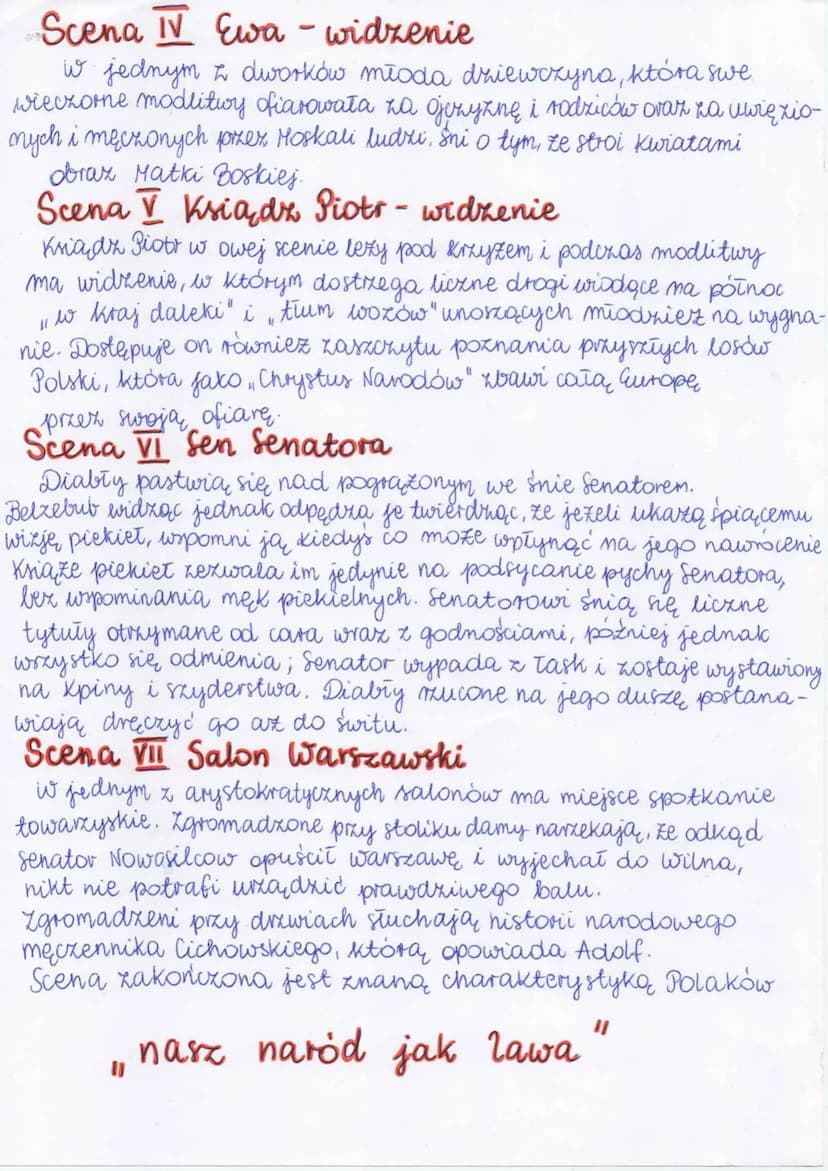 Scena IV Ewa - widzenie
W jednym z dworków młoda dziewczyna, która swe
wieczorne modlitwy ofiarowała za ojczyznę i rodziców oraz za uwięzio-
nych i męczonych przez Moskali ludzi. Śni o tym, że stroi kwiatami
obraz Matki Boskiej.
Scena V Ksiądz Piotr - widzenie
Ksiądz Piotr w owej scenie leży pod krzyżem i podczas modlitwy
ma widzenie, w którym dostrzega liczne drogi wiodące na północ
„w kraj daleki" i „tłum wozów" unoszących młodzież na wygna-
nie. Dostępuje on również zaszczytu poznania przyszłych losów
Polski, która jako „Chrystus Narodów" zbawi całą Europę
przez swoją ofiarę.
Scena VI Sen Senatora
Diabły pastwią się nad pogrążonym we śnie Senatorem.
Belzebub widząc jednak odpędza je twierdząc, że jeżeli ukażą śpiącemu
wizję piekieł, wspomni ją kiedyś co może wpłynąć na jego nawrócenie
Książe piekieł zezwala im jedynie na podsycanie pychy Senatora,
bez wspominania męk piekielnych. Senatorowi śnią się liczne
tytuły otrzymane od cara wraz z godnościami, później jednak
wszystko się odmienia; Senator wypada z łask i zostaje wystawiony
na kpiny i szyderstwa. Diabły rzucone na jego duszę postana-
wiają dręczyć go aż do świtu.
Scena VII Salon Warszawski
W jednym z arystokratycznych salonów ma miejsce spotkanie
towarzyskie. Zgromadzone przy stoliku damy narzekają, że odkąd
Senator Nowosilcow opuścił Warszawę i wyjechał do Wilna,
nikt nie potrafi urządzić prawdziwego balu.
Zgromadzeni przy drzwiach słuchają historii narodowego
męczennika Cichowskiego, którą opowiada Adolf.
Scena zakończona jest znaną charakterystyką Polaków
„nasz naród jak lawa"